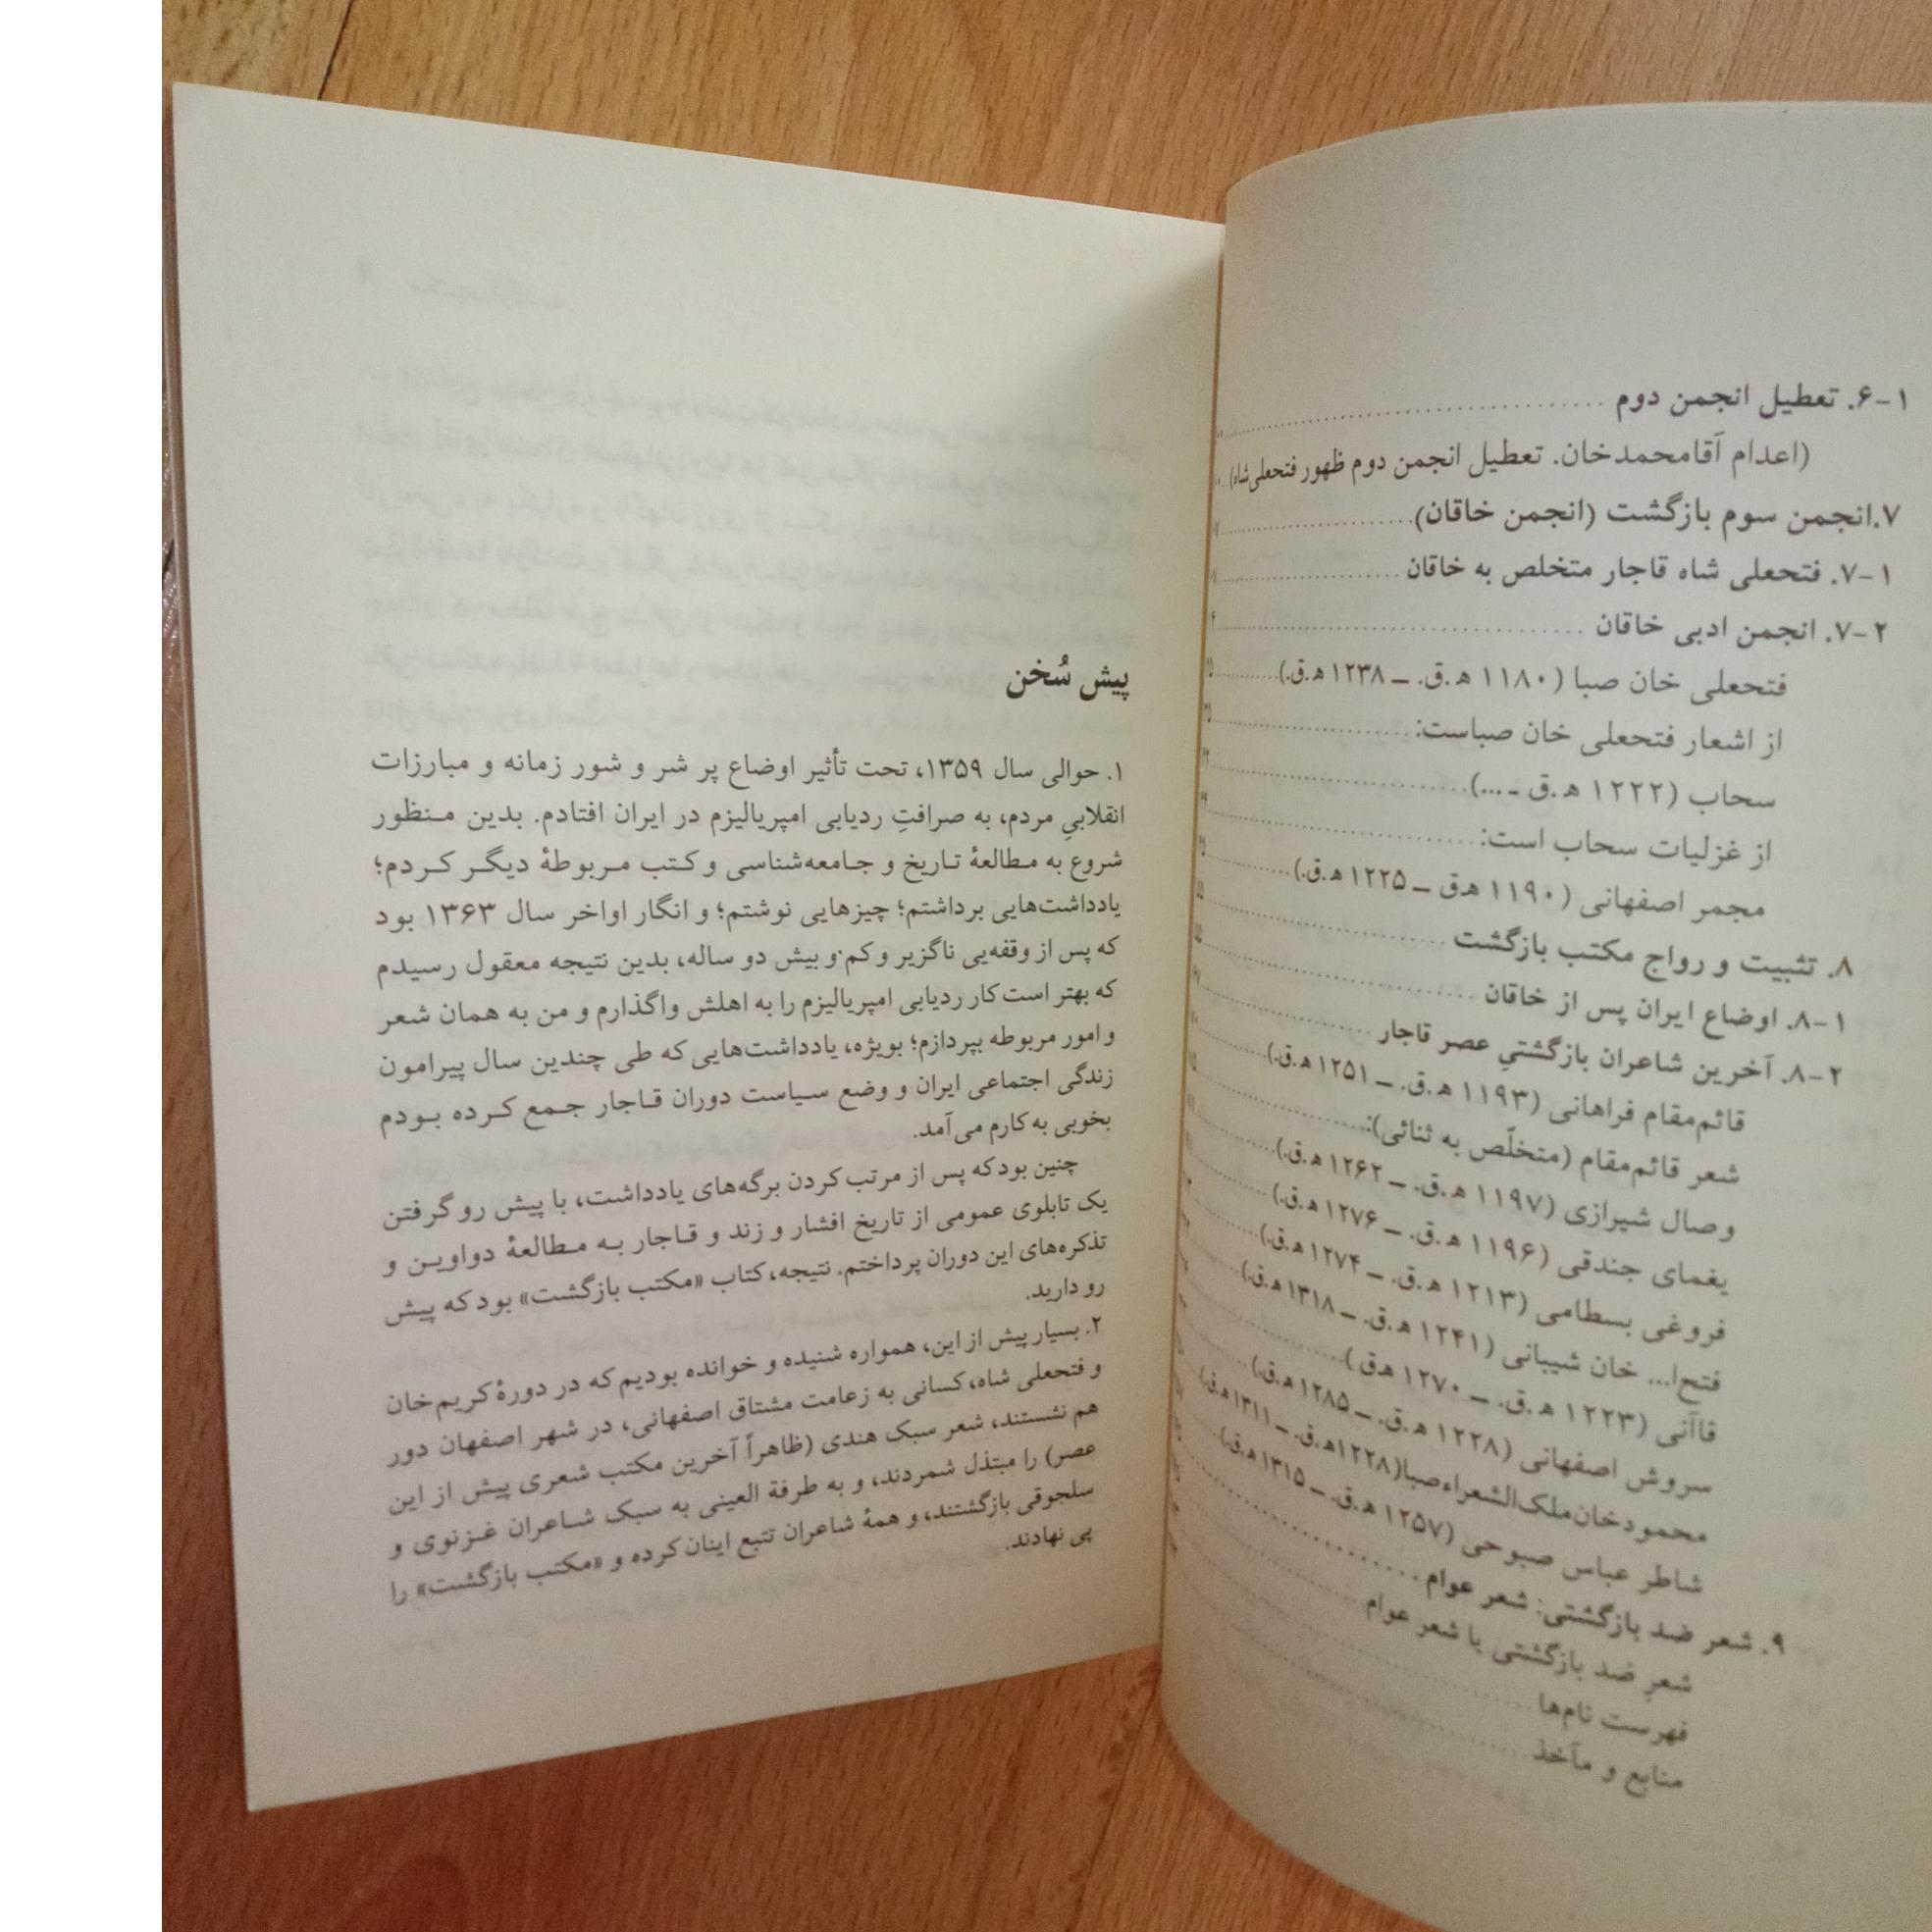 ۶-۱. تعطیل انجمن دوم
(اعدام آقامحمدخان. تعطیل انجمن دوم ظهور فتحعلی‌شاه)
۷.انجمن سوم بازگشت (انجمن خاقان)
۷-۱. فتحعلی شاه قاجار متخلص به خاقان
۷-۲. انجمن ادبی خاقان
فتحعلی خان صبا (۱۱۸۰ ه‍.ق. ــ ۱۲۳۸ ه‍.ق.)
از اشعار فتحعلی خان صباست:
سحاب (۱۲۲۲ ه‍.ق ـ ...)
از غزلیات سحاب است:
مجمر اصفهانی (۱۱۹۰ ه‍ق ــ ۱۲۲۵ ه‍.ق.)
۸. تثبیت و رواج مکتب بازگشت
۸-۱. اوضاع ایران پس از خاقان
۸-۲. آخرین شاعران بازگشتیِ عصر قاجار
قائم‌مقام فراهانی (۱۱۹۳ ه‍.ق. ــ ۱۲۵۱ ه‍.ق.)
شعر قائم‌مقام (متخلّص به ثنائی):
وصال شیرازی (۱۱۹۷ ه‍.ق. ــ ۱۲۶۲ ه‍.ق.)
یغمای جندقی (۱۱۹۶ ه‍.ق. ــ ۱۲۷۶ ه‍.ق.)
فروغی بسطامی (۱۲۱۳ ه‍.ق. ــ ۱۲۷۴ ه‍.ق.)
فتح‌ا... خان شیبانی (۱۲۴۱ ه‍.ق. ــ ۱۳۱۸ ه‍.ق.)
قاآنی (۱۲۲۳ ه‍.ق. ــ ۱۲۷۰ ه‍ق)
سروش اصفهانی (۱۲۲۸ ه‍.ق. ــ ۱۲۸۵ ه‍.ق.)
محمودخان‌ملک‌الشعراءصبا(۱۲۲۸ه‍.ق. ــ ۱۳۱۱ ه‍.ق.)
شاطر عباس صبوحی (۱۲۵۷ ه‍.ق. ــ ۱۳۱۵ ه‍.ق.)
۹. شعر ضد بازگشتی: شعر عوام
شعرِ ضد بازگشتی یا شعر عوام
فهرست نام‌ها
منابع و مآخذ
پیش سُخن
۱. حوالی سال ۱۳۵۹، تحت تأثیر اوضاع پر شر و شور زمانه و مبارزات
انقلابیِ مردم، به صرافتِ ردیابی امپریالیزم در ایران افتادم. بدین منظور
شروع به مطالعهٔ تاریخ و جامعه‌شناسی و کتب مربوطهٔ دیگر کردم؛
یادداشت‌هایی برداشتم؛ چیزهایی نوشتم؛ و انگار اواخر سال ۱۳۶۳ بود
که پس از وقفه‌یی ناگزیر و کم و بیش دو ساله، بدین نتیجه معقول رسیدم
که بهتر است کار ردیابی امپریالیزم را به اهلش واگذارم و من به همان شعر
و امور مربوطه بپردازم؛ بویژه، یادداشت‌هایی که طی چندین سال پیرامون
زندگی اجتماعی ایران و وضع سیاست دوران قاجار جمع کرده بودم
بخوبی به کارم می‌آمد.
چنین بود که پس از مرتب کردن برگه‌های یادداشت، با پیش رو گرفتن
یک تابلوی عمومی از تاریخ افشار و زند و قاجار به مطالعهٔ دواوین و
تذکره‌های این دوران پرداختم. نتیجه، کتاب «مکتب بازگشت» بود که پیش
رو دارید.
۲. بسیار پیش از این، همواره شنیده و خوانده بودیم که در دورهٔ کریم‌خان
و فتحعلی شاه، کسانی به زعامت مشتاق اصفهانی، در شهر اصفهان دور
هم نشستند، شعر سبک هندی (ظاهراً آخرین مکتب شعری پیش از این
عصر) را مبتذل شمردند، و به طرفة العینی به سبک شاعران غزنوی و
سلجوقی بازگشتند، و همهٔ شاعران تتبع اینان کرده و «مکتب بازگشت» را
پی نهادند.